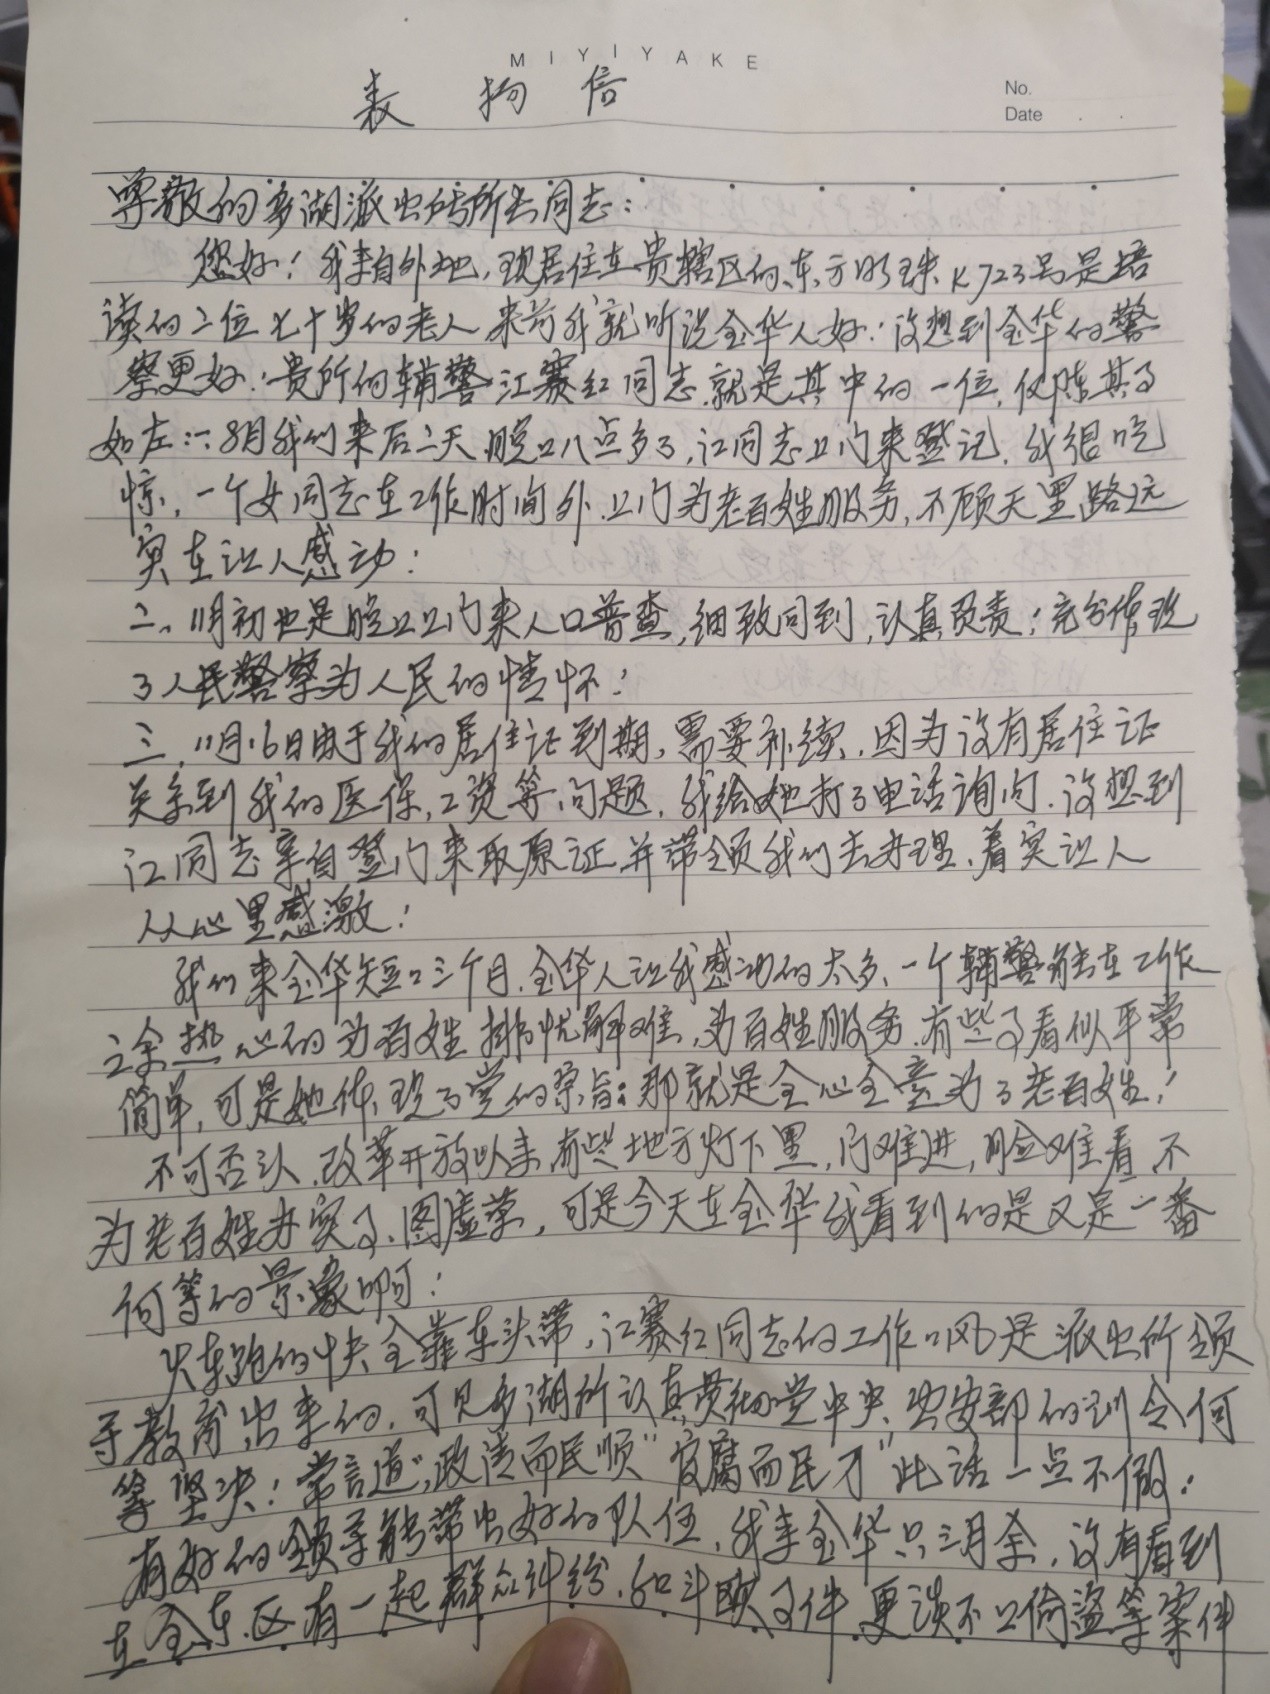 MIYIYAKE
表扬信
No.
Date
尊敬的多湖派出所所长同志：
您好！我来自外地，现居住在贵辖区的东方明珠K723号是陪
读的二位七十岁的老人来前我就听说金华人好！没想到金华的警
察更好！贵所的辅警江赛红同志就是其中的一位，仅陈其事
如左：一、8月我们来后二天，晚上八点多了，江同志上门来登记，我很吃
惊，一个女同志在工作时间外，上门为老百姓服务，不顾天黑路远
实在让人感动！
二、11月初也是晚上上门来人口普查，细致问到，认真负责！充分体现
了人民警察为人民的情怀！
三、11月16日由于我的居住证到期，需要补续，因为没有居住证
关系到我的医保，工资等问题，我给她打了电话询问，没想到
江同志亲自登门来取原证并带领我们去办理，着实让人
从心里感激！
我们来金华短短三个月，金华人让我感动的太多，一个辅警能在工作
之余热心的为百姓排忧解难，为百姓服务，有些事看似平常
简单，可是她体现了党的宗旨：那就是全心全意为了老百姓！
不可否认，改革开放以来，有些地方灯下黑，门难进，脸难看，不
为老百姓办实事，图虚荣，可是今天在金华我看到的是又是一番
何等的景象啊！
火车跑的快全靠车头带，江赛红同志的工作作风是派出所领
导教育出来的，可见多湖所认真贯彻党中央，公安部的训令何
等坚决！常言道"政清而民顺""官腐而民刁"此话一点不假！
有好的领导能带出好的队伍，我来金华只三月余，没有看到
在金东区有一起群众纠纷，和斗殴事件，更谈不上偷盗等案件